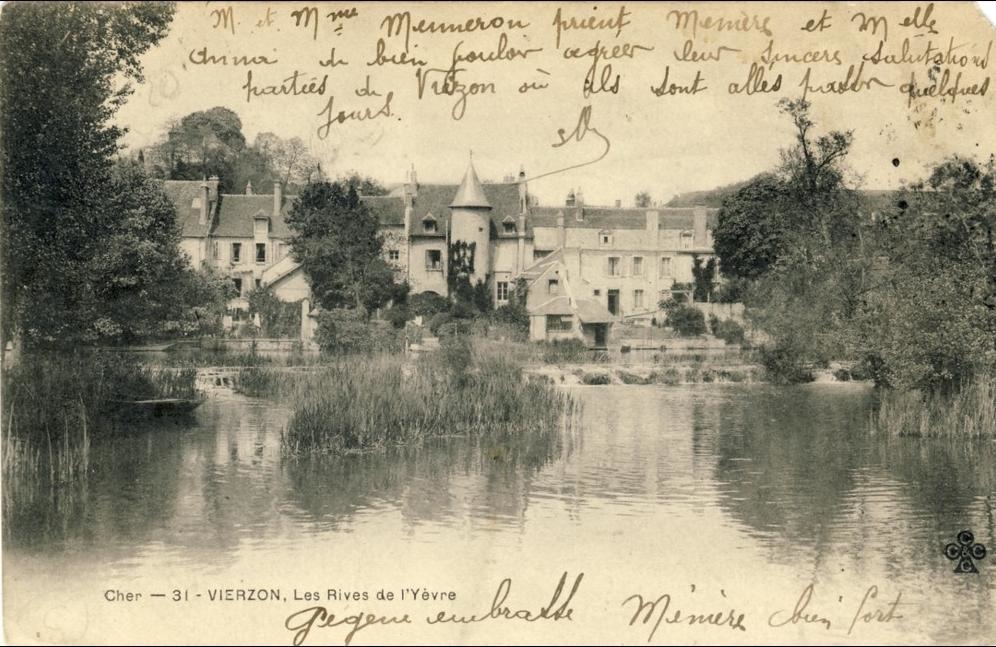 M. et Mme Menneron prient Mémère et Melle
de bien vouloir agréer leur sincers salutations
parties de Vierzon où ils sont alles passer quelques
jours.
Cher — 31 - VIERZON, Les Rives de l'Yèvre
Gégène embrasse Mémère bien fort
CCCC